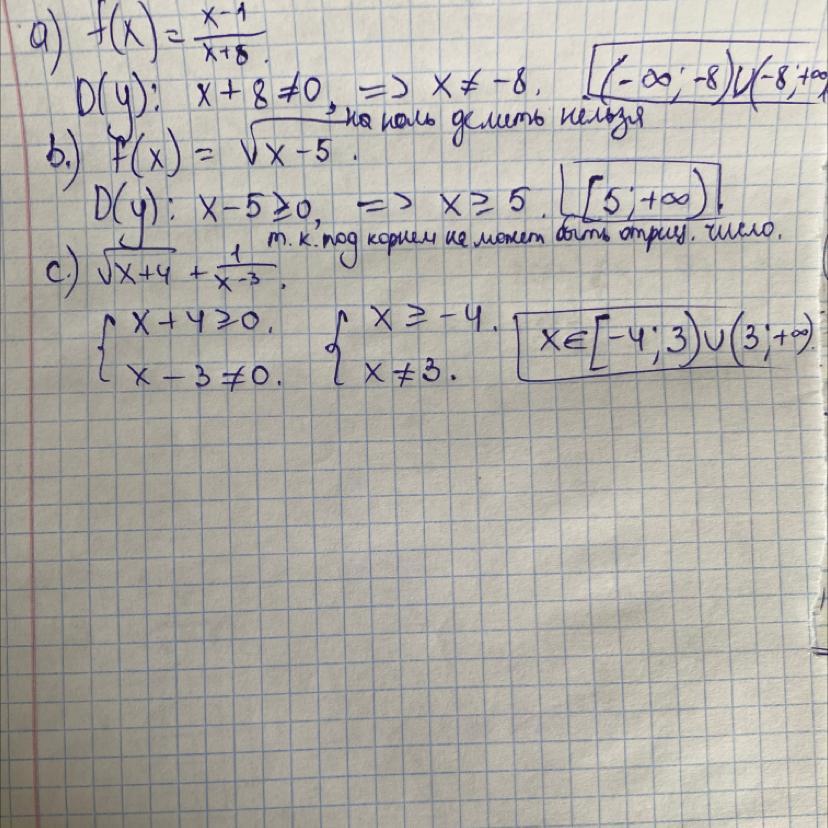 a) f(x) = x-1/x+8.
D(y): x+8≠0, => x≠-8. (-∞;-8)∪(-8;+∞)
на ноль делить нельзя
b.) f(x) = √x-5.
D(y): x-5≥0, => x≥5. [5;+∞).
т.к. под корнем не может быть отриц. число.
c.) √x+4 + 1/x-3.
{ x+4≥0. { x≥-4. x∈[-4;3)∪(3;+∞).
x-3≠0. x≠3.